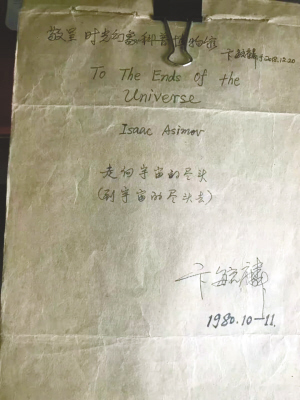 敬呈时光幻象科普博物馆
卞毓麟于2018.12.20
To The Ends of the
Universe
Isaac Asimov
走向宇宙的尽头
(到宇宙的尽头去)
卞毓麟
1980.10—11.